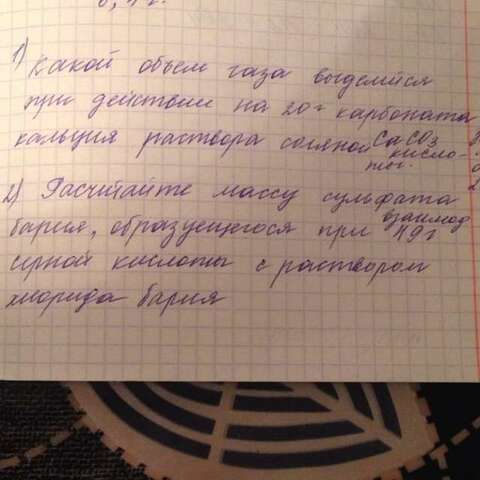 1) Какой объем газа выделийся
при действии на 20 г карбоната
кальция раствора соляной CaCO3
кисло-
той.
2) Расчитайте массу сульфата
бария, образующегося при взаимод
49 г
серной кислоты с раствором
хлорида бария